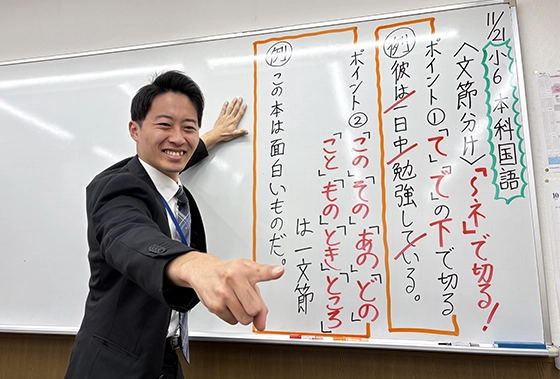 11/21
小6 本科国語
〈文節分け〉「〜ネ」で切る!
ポイント①「て」「で」の下で切る
例 彼は/一日中/勉強して/いる。
ポイント②「この」「その」「あの」「どの」
「こと」「もの」「とき」「ところ」
は一文節
例 この本は面白いものだ。